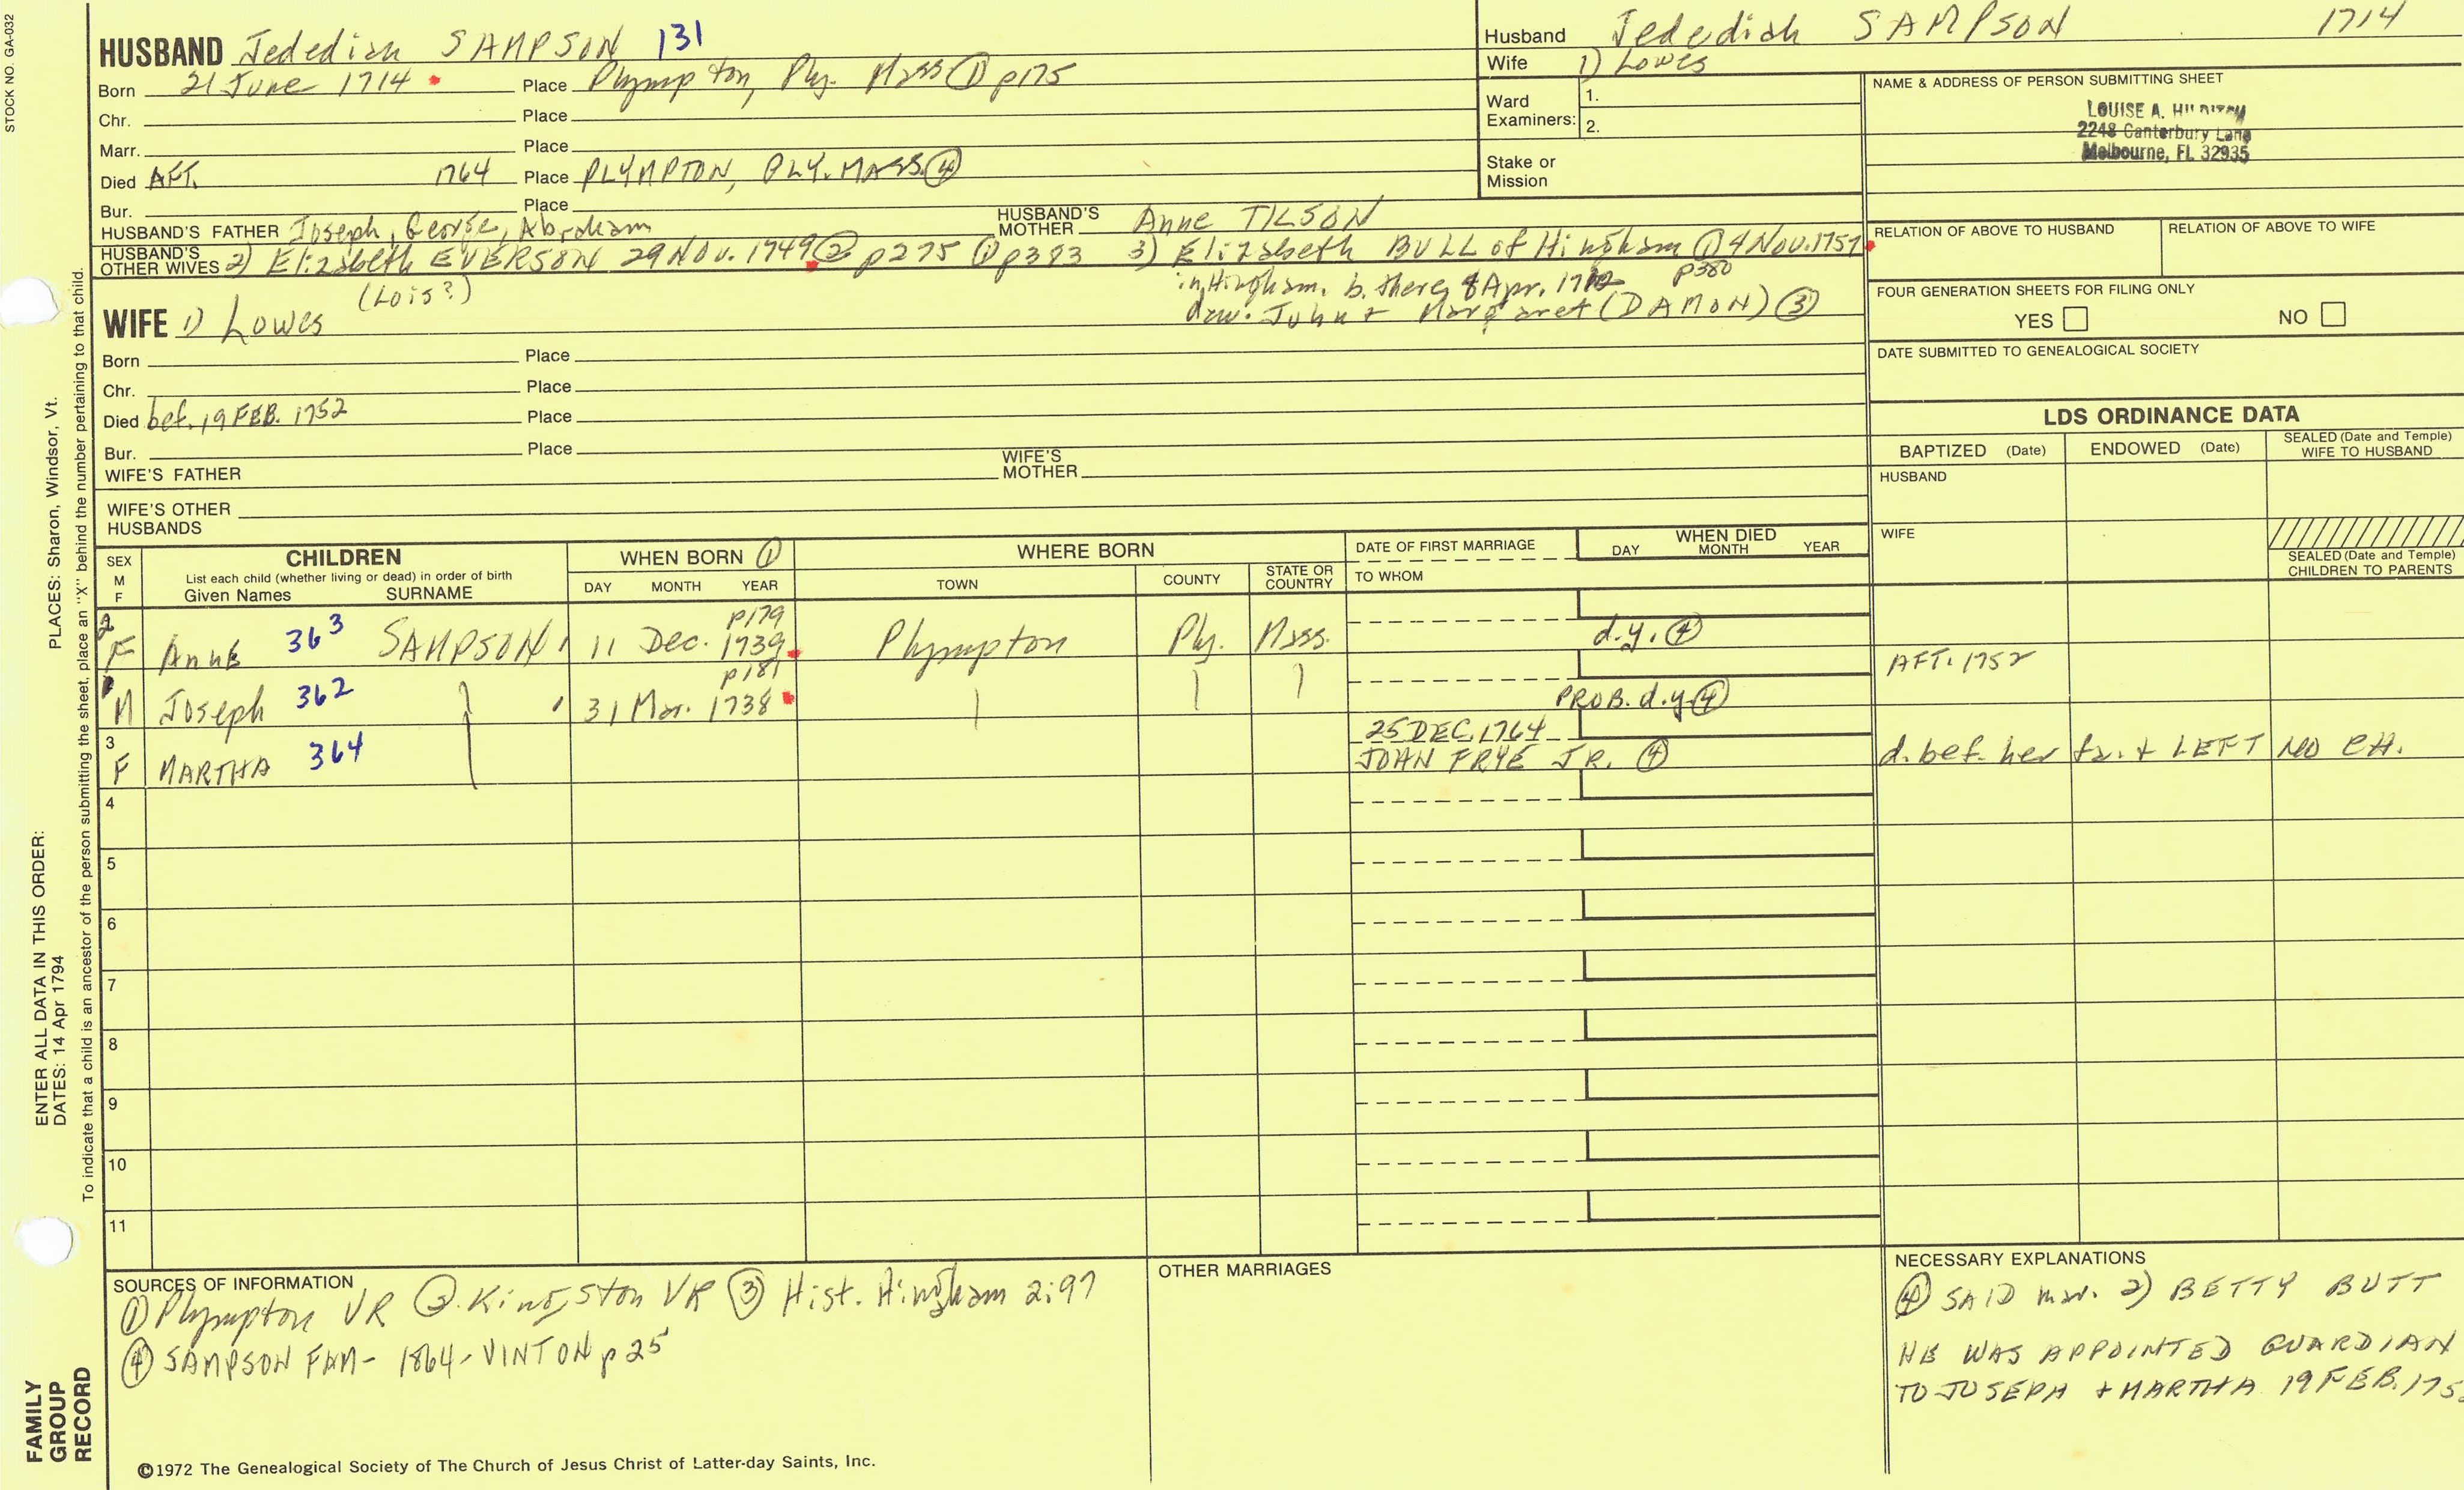 STOCK NO. GA-032
HUSBAND Jedediah SAMPSON 131
Born 21 June 1714 Place Plympton, Ply. Mass ① p175
Chr. Place
Marr. Place
Died AFT. 1764 Place PLYMPTON, PLY. MASS. ④
Bur. Place
HUSBAND'S FATHER Joseph, George, Abraham HUSBAND'S MOTHER Anne TILSON
HUSBAND'S OTHER WIVES 2) Elizabeth EVERSON 29 NOV. 1749 ② p275 ① p393 3) Elizabeth BULL of Hingham ① 4 NOV. 1757
p380
in Hingham. b. there 8 Apr.
dau. John & Margaret (DAMON) ③
(Lois?)
WIFE 1) Lowes
Born Place
Chr. Place
Died bef. 19 FEB. 1752 Place
Bur. Place
WIFE'S FATHER WIFE'S MOTHER
WIFE'S OTHER HUSBANDS
Husband Jedediah SAMPSON 1714
Wife 1) Lowes
Ward Examiners: 1.
2.
Stake or Mission
NAME & ADDRESS OF PERSON SUBMITTING SHEET
LOUISE A.
2248 Canterbury Lane
Melbourne, FL 32935
RELATION OF ABOVE TO HUSBAND RELATION OF ABOVE TO WIFE
FOUR GENERATION SHEETS FOR FILING ONLY
YES NO
DATE SUBMITTED TO GENEALOGICAL SOCIETY
LDS ORDINANCE DATA
BAPTIZED (Date) ENDOWED (Date) SEALED (Date and Temple) WIFE TO HUSBAND
HUSBAND
WIFE
SEALED (Date and Temple) CHILDREN TO PARENTS
SEX M F
CHILDREN
List each child (whether living or dead) in order of birth
Given Names SURNAME
WHEN BORN ①
DAY MONTH YEAR
WHERE BORN
TOWN COUNTY STATE OR COUNTRY
DATE OF FIRST MARRIAGE
TO WHOM
WHEN DIED
DAY MONTH YEAR
p179
2 F Anne 363 SAMPSON 11 Dec. 1739 Plympton Ply. Mass. d.y. ④
p181
1 M Joseph 362 31 Mar. 1738 PROB. d.y. ④ AFT. 1752
25 DEC. 1764
3 F MARTHA 364 JOHN FRYE JR. ④ d. bef. her fa. + LEFT NO CH.
4
5
6
7
8
9
10
11
SOURCES OF INFORMATION
① Plympton VR ② Kingston VR ③ Hist. Hingham 2:97
④ SAMPSON FAM - 1864 - VINTON p 25
OTHER MARRIAGES
NECESSARY EXPLANATIONS
④ SAID mar. 2) BETTY BUTT
HE WAS APPOINTED GUARDIAN
TO JOSEPH + MARTHA 19 FEB.
©1972 The Genealogical Society of The Church of Jesus Christ of Latter-day Saints, Inc.
FAMILY GROUP RECORD
ENTER ALL DATA IN THIS ORDER:
DATES: 14 Apr 1794 PLACES: Sharon, Windsor, Vt.
To indicate that a child is an ancestor of the person submitting the sheet, place an "X" behind the number pertaining to that child.